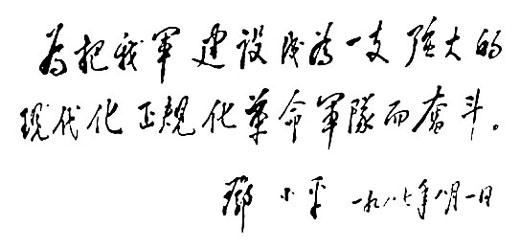 为把我軍建设成为一支强大的
现代化正規化革命軍隊而奮斗。
鄧小平 一九八七年八月一日